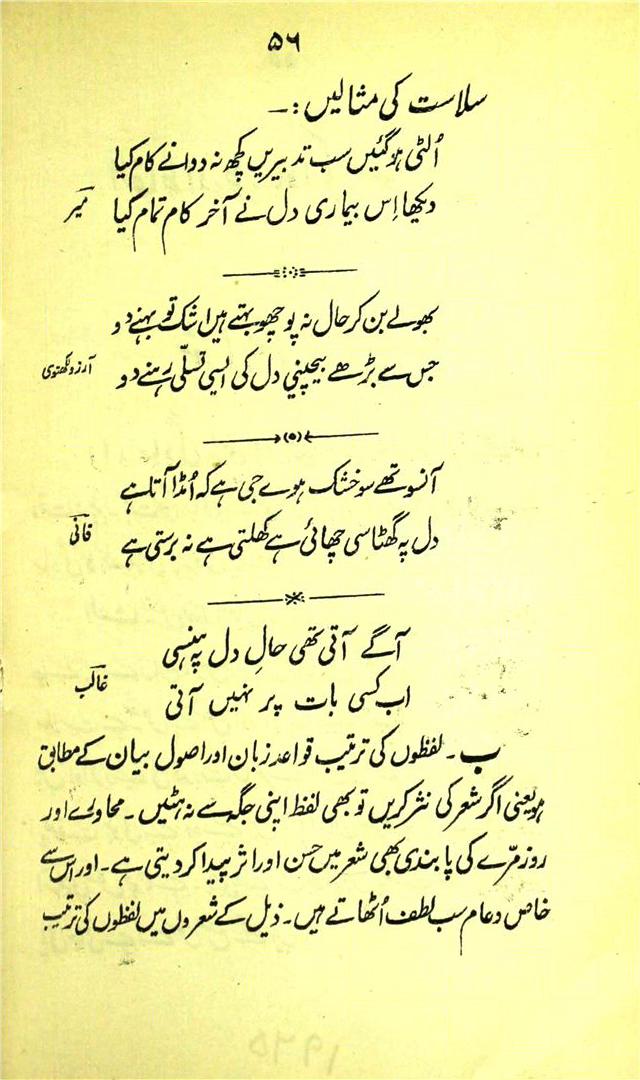 ۵۶
سلاست کی مثالیں :۔
اُلٹی ہوگئیں سب تدبیریں کچھ نہ دوا نے کام کیا
دیکھا اِس بیماری دل نے آخر کام تمام کیا میر
بھولے بن کر حال نہ پوچھو بہتے ہیں اشک تو بہنے دو
جس سے بڑھے بیچینی دل کی ایسی تسلّی رہنے دو آرزو لکھنوی
آنسو تھے سو خشک ہوے جی ہے کہ اُمڈا آتا ہے
دل پہ گھٹا سی چھائی ہے کھلتی ہے نہ برستی ہے فانی
آگے آتی تھی حالِ دل پہ ہنسی
اب کسی بات پر نہیں آتی غالب
ب ۔ لفظوں کی ترتیب قواعد زبان اور اصول بیان کے مطابق
ہو یعنی اگر شعر کی نثر کریں تو بھی لفظ اپنی جگہ سے نہ ہٹیں ۔ محاورے اور
روز مرّے کی پابندی بھی شعر میں حسن اور اثر پیدا کر دیتی ہے ۔ اور اس سے
خاص و عام سب لطف اُٹھاتے ہیں ۔ ذیل کے شعروں میں لفظوں کی ترتیب